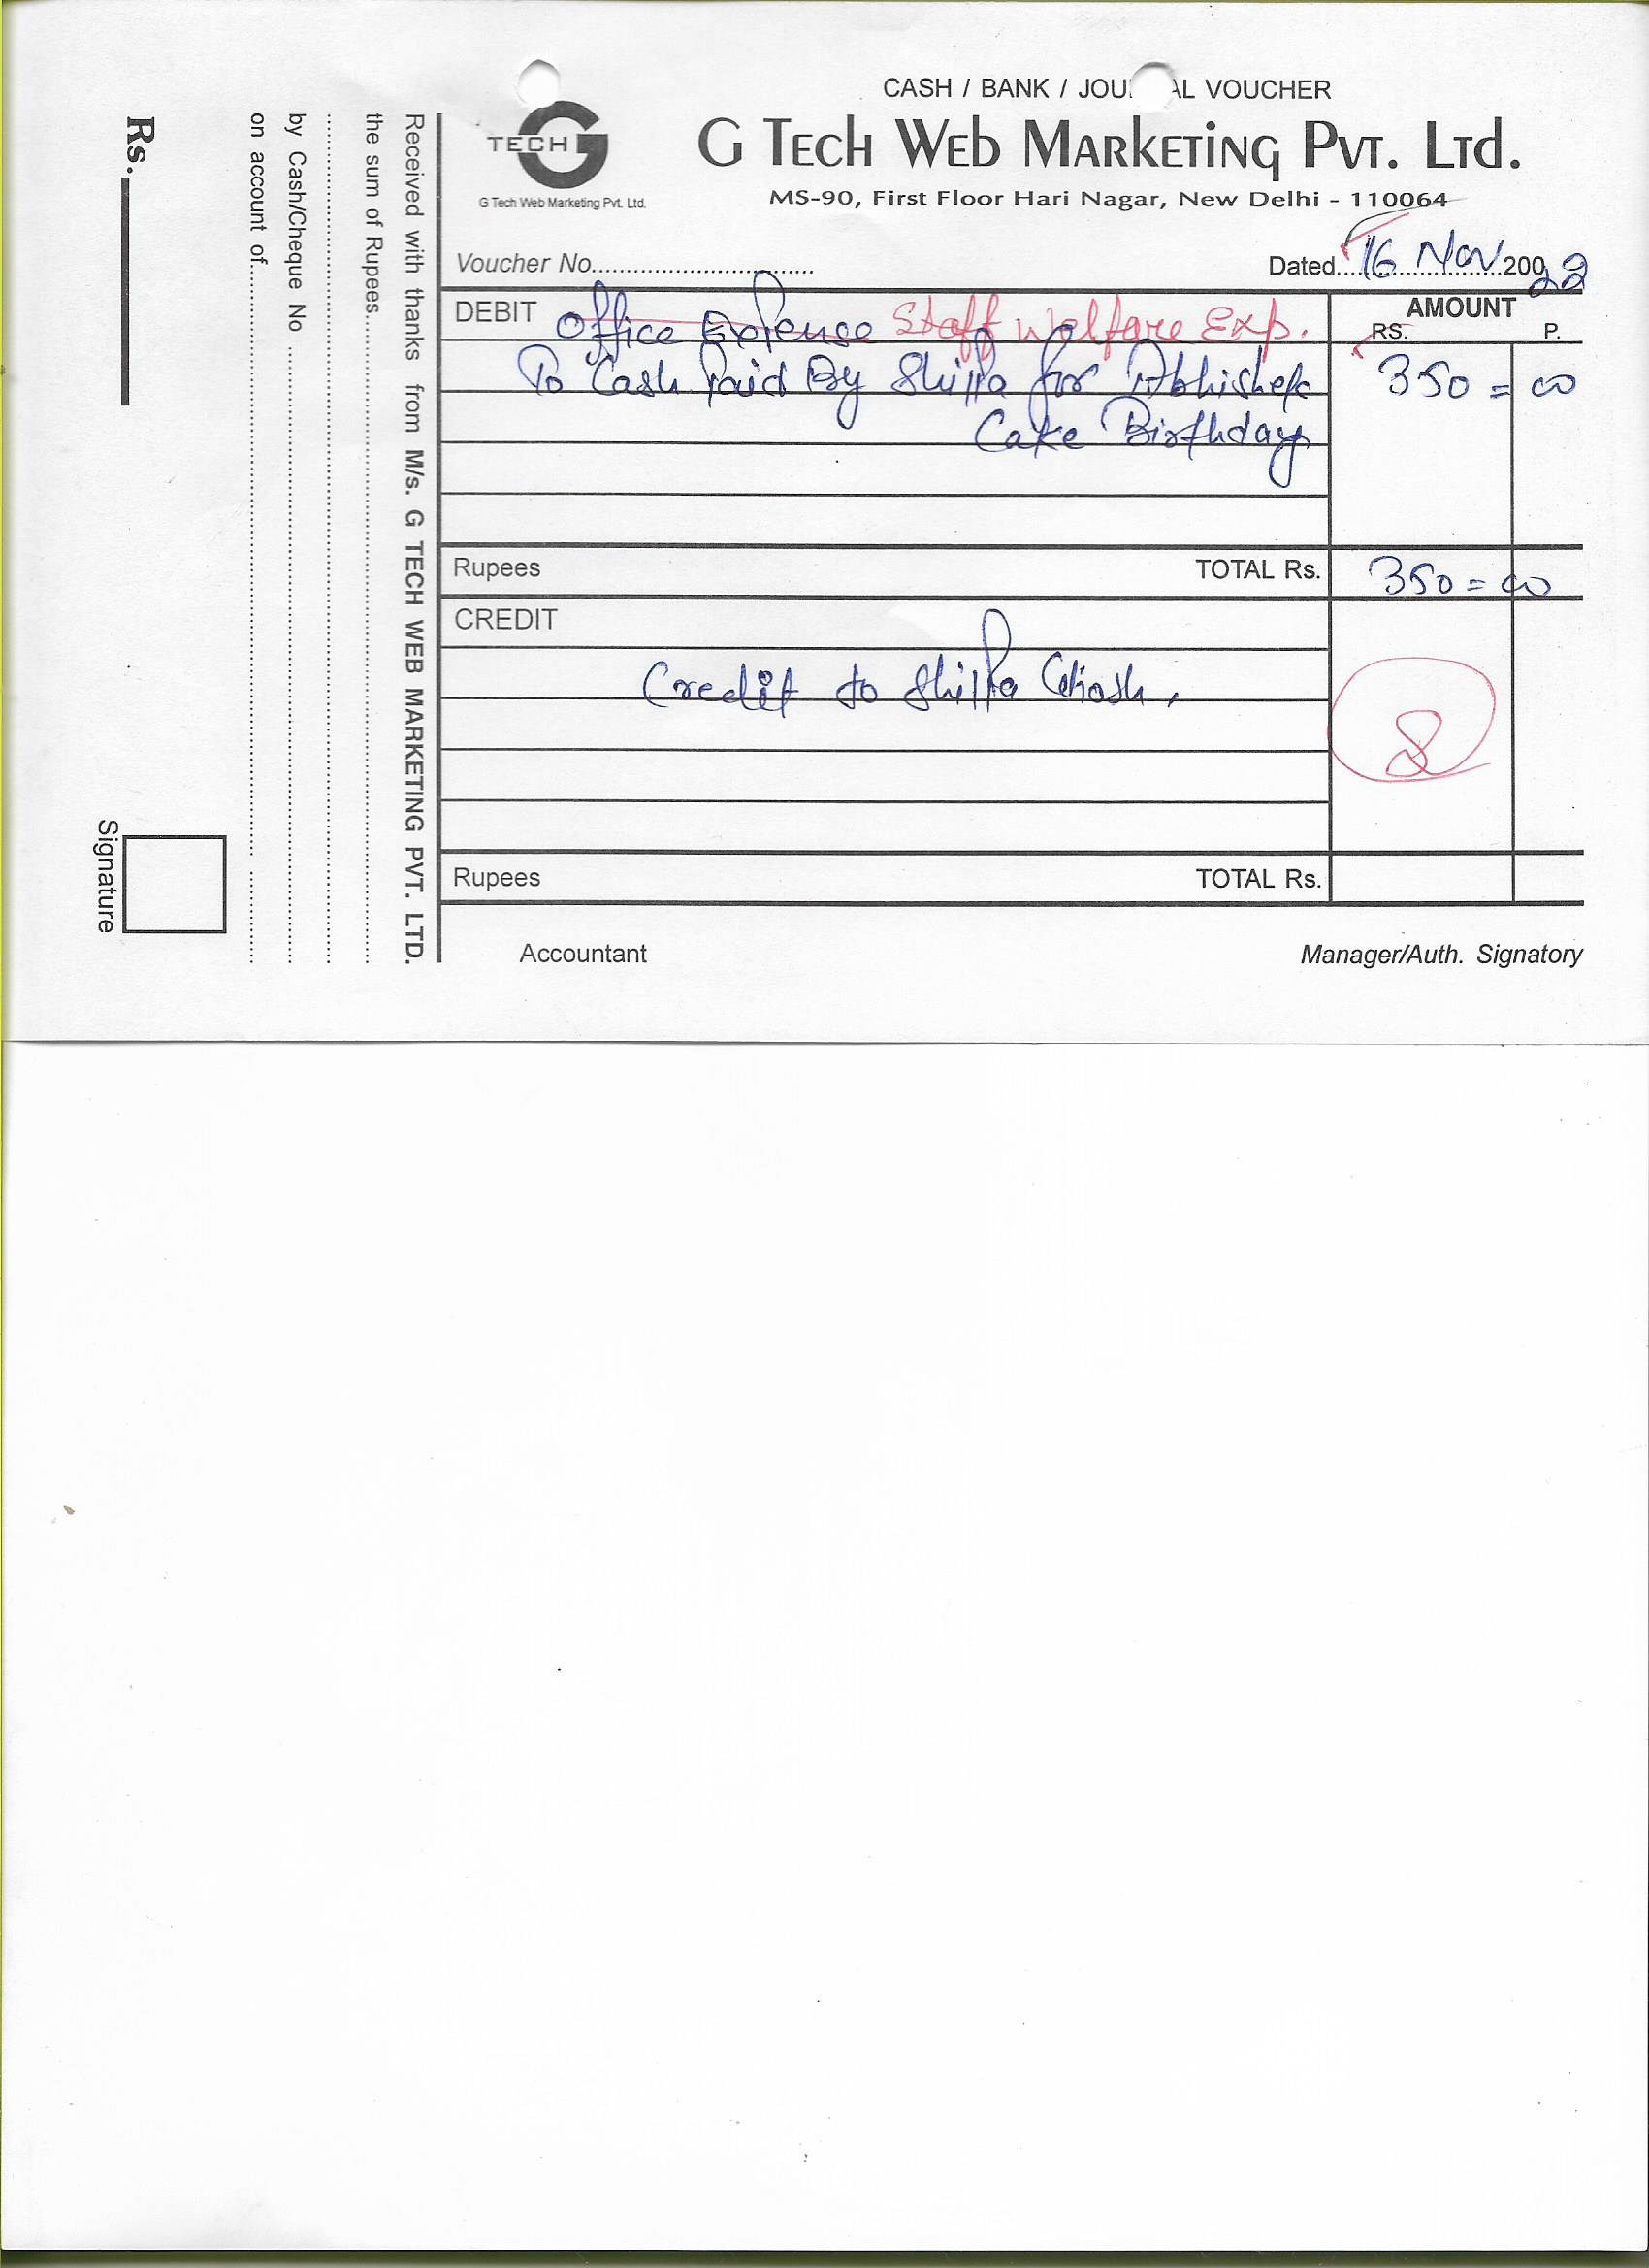 CASH / BANK / JOU AL VOUCHER
TECH G
G Tech Web Marketing Pvt. Ltd.
G Tech Web Marketing Pvt. Ltd.
MS-90, First Floor Hari Nagar, New Delhi - 110064
Voucher No............................... Dated....16 Nov...200 22
DEBIT Office Expense Staff Welfare Exp. AMOUNT
RS. P.
To Cash Paid By Shilpa for Abhishek 350 = 00
Cake Birthday
Rupees TOTAL Rs. 350 = 00
CREDIT
Credit to Shilpa Ghosh.
8
Rupees TOTAL Rs.
Accountant Manager/Auth. Signatory
Received with thanks from M/s. G TECH WEB MARKETING PVT. LTD.
the sum of Rupees..........
by Cash/Cheque No ..........
on account of..........
Rs.
Signature